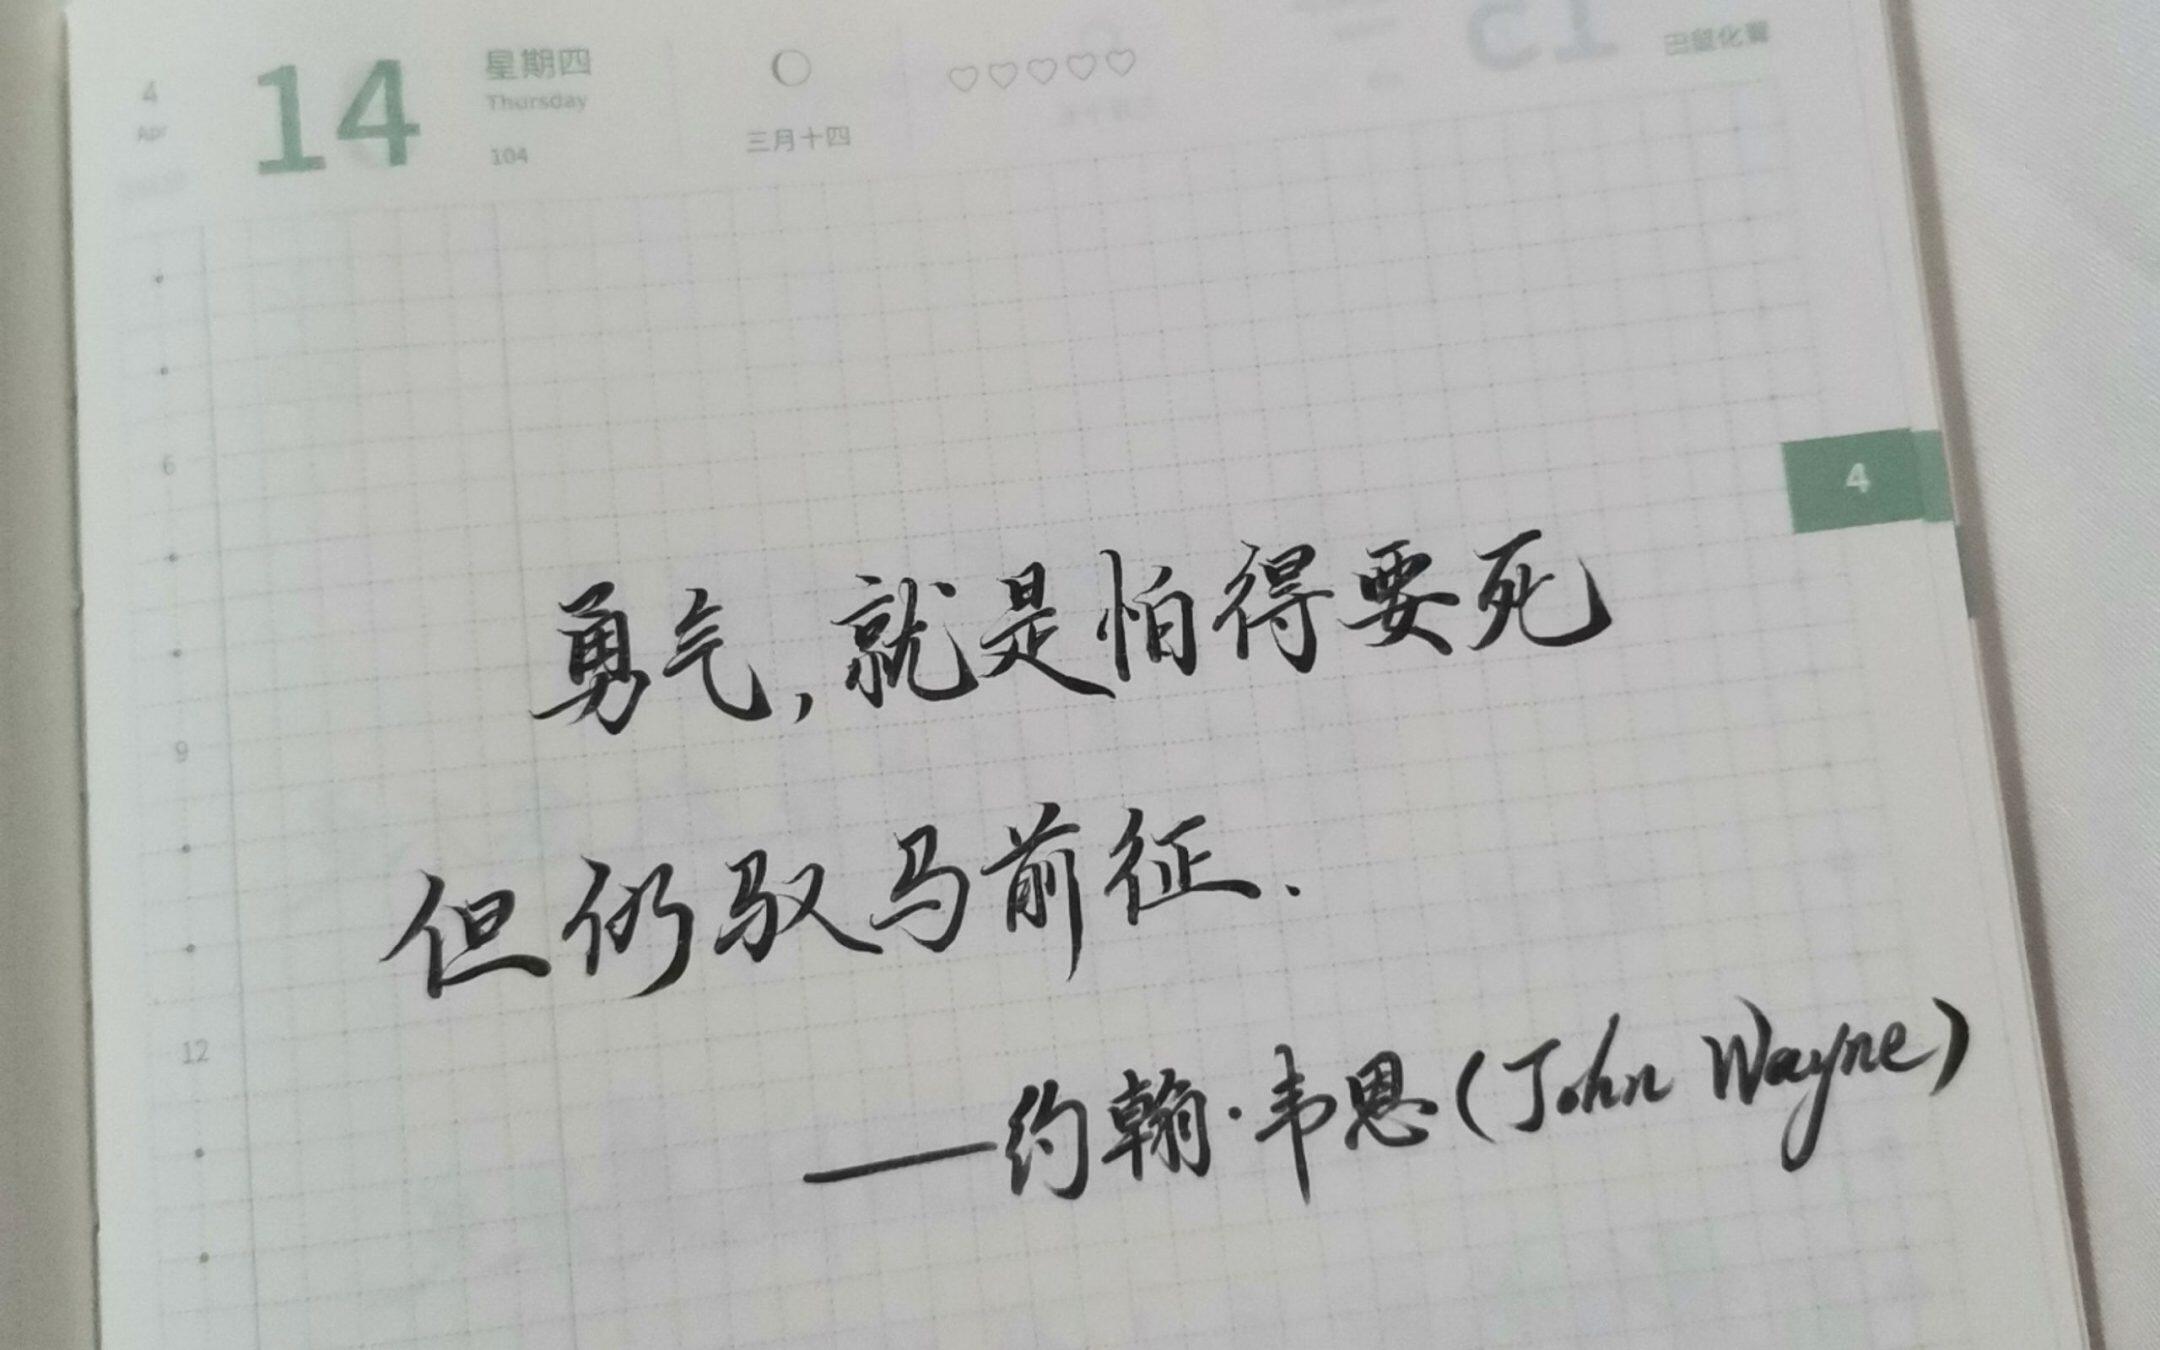 4
Apr
14
星期四
Thursday
104
三月十四
6
9
12
4
勇气,就是怕得要死
但仍驭马前征.
——约翰·韦恩(John Wayne)